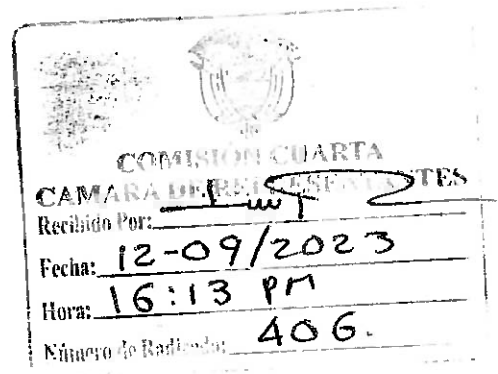 COMISION CUARTA
CAMARA DE REPRESENTANTES
Recibido Por:
Fecha: 12-09/2023
Hora: 16:13 PM
Número de Radicado: 406.